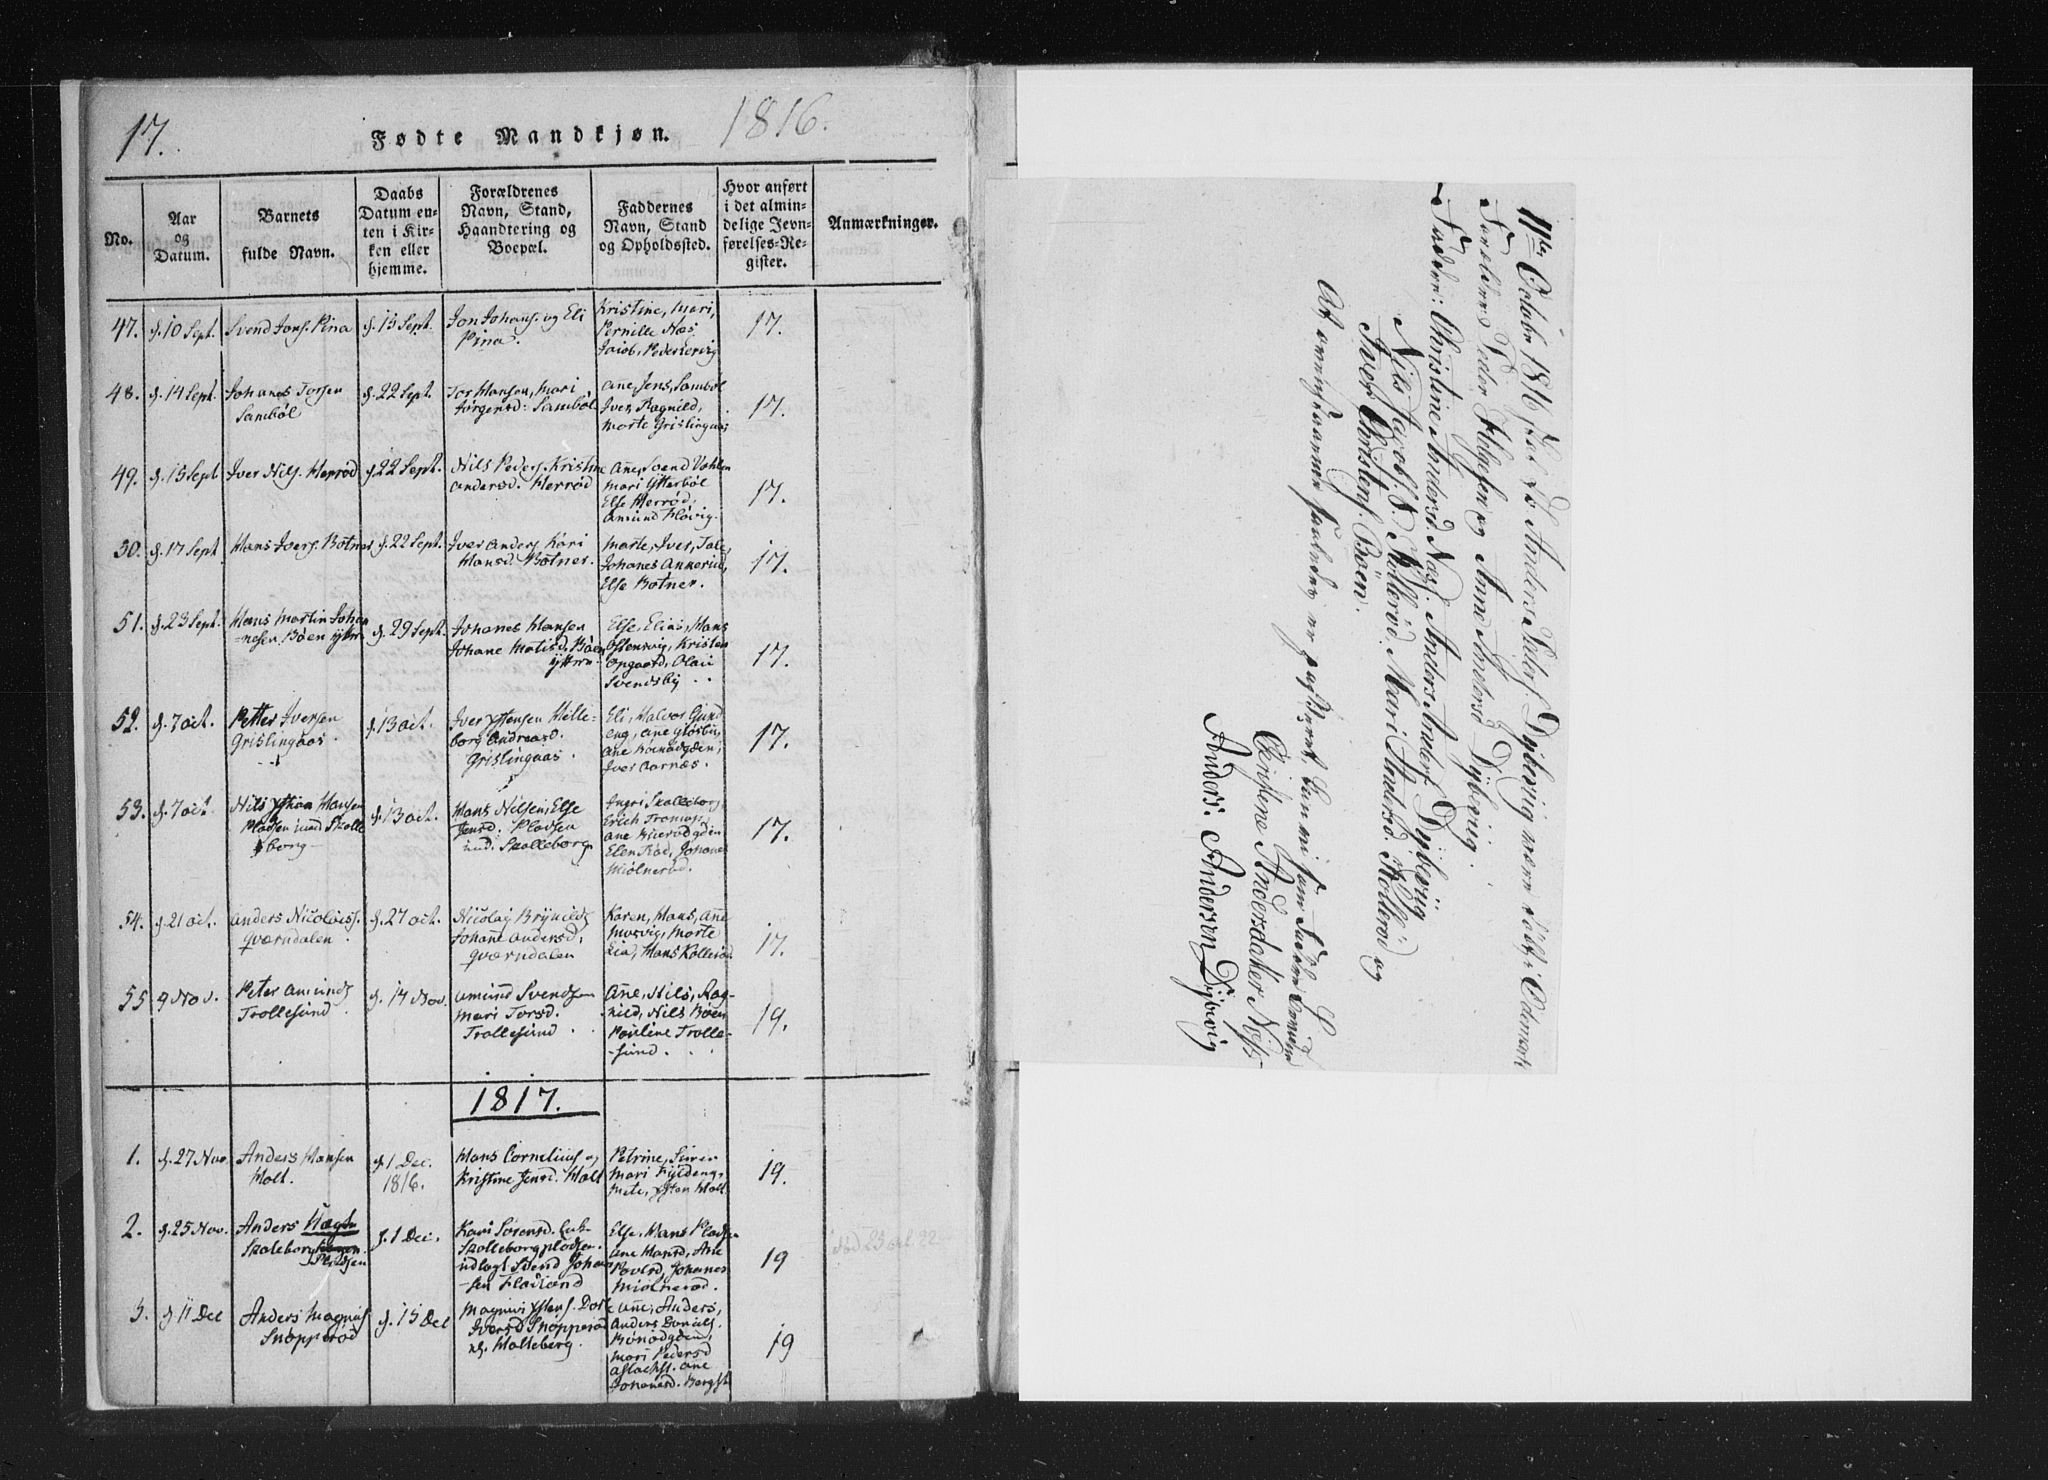 17.
Fødte Mandkjøn.
1816.
No.
Aar
og
Datum.
Barnets
fulde Navn.
Daabs
Datum en-
ten i Kir-
ken eller
hjemme.
Forældrenes
Navn, Stand,
Haandtering og
Boepæl.
Faddernes
Navn, Stand
og Opholdssted.
Hvor anført
i det almin-
delige Jevn-
førelses-Re-
gister.
Anmærkninger.
47.
d. 10 Sept.
Svend Jons. Pina
d. 15 Sept.
Jon Johans. og Eli
Pina.
Kristine, Mari,
Pernille Næs,
Jacob, Peder
17.
48.
d. 14 Sept.
Johanes Torsen
Sambøl
d. 22 Sept.
Tor Hansen, Mari
Jørgensd: Sambøl
Ane, Jens, Sambøl
Iver, Ragnild,
Marte Grislingaas
17.
49.
d. 15 Sept
Iver Nils. Herrød
d. 22 Sept.
Nils Peders. Kristine
Andersd. Herrød
Ane, Svend Vahlen
Mari Ytterbøl
Else Herrød,
Amund Fløvig.
17.
50.
d. 17 Sept
Hans Ivers. Botner
d. 22 Sept.
Iver Anders. Kari
Hansd. Botner.
Marte, Iver, Tale,
Johanes Ankeriid,
Else Botner.
17.
51.
d. 23 Sept.
Hans Martin Johan
-nesen Bøen yttre
d. 29 Sept.
Johanes Hansen
Johane Matisd, Bøen
yttre
Else, Elias, Hans
Østensvig, Kristen
Opgaard, Olaii
Svendsby
17.
52.
d. 7 Oct.
Petter Iversen
Grislingaas.
d. 13 Oct.
Iver Ystensen Hille-
borg Andreasd.
Grislingaas.
Eli, Halvor Gund
eng, Ane Gløsbu,
Ane Bønødgden,
Iver Aarnæs.
17.
53.
d. 7 Oct
Nils Hansen
Pladsen und Skolle
borg
d. 13 Oct.
Hans Nilsen, Else
Jensd. Pladsen
und. Skolleborg
Ingri Skolleborg
Erich Tromop,
Ane
Elen Rød, Johanes
Miølnerød.
17.
54.
d. 21 Oct.
Anders Nicolaiss.
Qværndalen.
d. 27 Oct.
Nicolaj Brynilds
Johane Andersd,
Qværndalen
Karen, Hans, Ane
Musvig, Marte
Lia, Hans Kollerød
17.
55
9 Nov.
Peter Amunds
Trollesund.
d. 14 Nov.
Amund Svendsen
Mari Torsd.
Trollesund
Ane, Nils, Rag-
nild, Nils Bøen
Pauline Trolle-
-sund.
19.
1817.
1.
d. 27 Nov.
Anders Hansen
Holt.
d. 1 Dec.
1816.
Hans Cornelius og
Kristine Jensd. Holt
Petrine, Sører
Mari Fyldeng,
Mete, Ysten Holt
19.
2.
d. 25 Nov.
Anders
Skoleborg
Pladsen
d. 1 Dec.
Kari Sørensd. Enke
Skolleborgpladsen.
udlagt Svend Johan
-sen Fladsand
Else, Hans Pladsen
Ane Hansd, Ane
Povlsd, Johanes
Miølnerød.
19
3.
d 11 Dec
Anders Magnus
Snøpperød
d. 15 Dec
Magnus Ystens. Dorte
Iversd Snøpperød
Holleberg.
Ane, Anders,
Anders Daniels.
Bønødgden,
Mari Pedersd
Aslachs. Ane
Johanesd. Bergst
19
11te October 1816, Anders Peders. Dybevig være født i Odemark
Forældere: Peder Helgesen og Anne Andersd Dybevig.
Faddere: Christine Andersd. Næs. Anders Anders Dybevig
Nils Jacobs. Kollerød. Mari Andersd. Kollerød og
Iver Christens. Bøen.
At saaledes er passeret, kan vi som Faddere bevidne
Christine Andersdatter Næss
Anders Andersen Dybevig